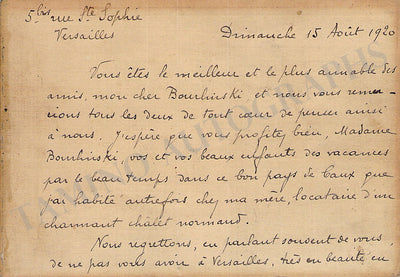 5bis rue Ste Sophie
Versailles
Dimanche 15 Août 1920
Vous êtes le meilleur et le plus aimable des
amis, mon cher Bourlinski et nous vous remer-
cions tous les deux de tout cœur de penser ainsi
à nous. J'espère que vous profitez bien, Madame
Bourlinski, vos et vos beaux enfants des vacances
par le beau temps dans ce bon pays de Caux que
j'ai habité autrefois chez ma mère, locataire d'un
charmant châlet normand.
Nous regrettons, en parlant souvent de vous,
de ne pas vous avoir à Versailles, très en beauté en
TAMINO AUTOGRAPHS